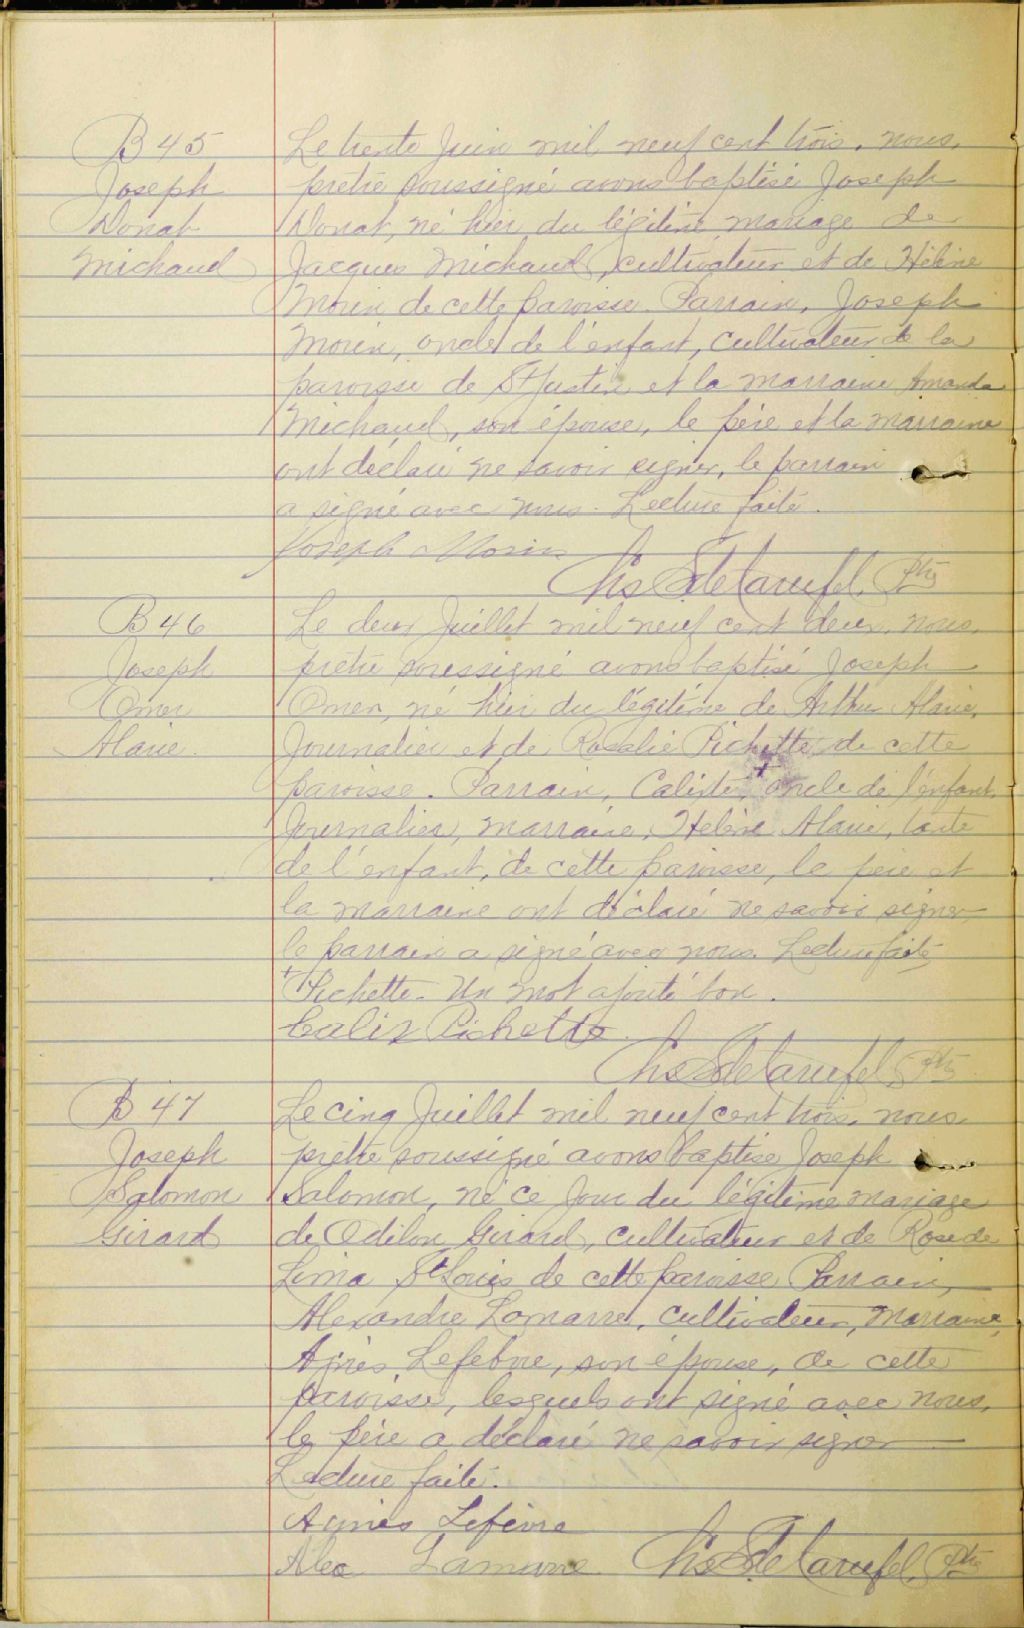 B 45
Joseph
Donat
Michaud
Le trente Juin mil neuf cent trois, nous,
prêtre soussigné avons baptisé Joseph
Donat, né hier du légitime mariage de
Jacques Michaud, cultivateur et de Hélène
Morin de cette paroisse. Parrain, Joseph
Morin, oncle de l'enfant, cultivateur de la
paroisse de St Justin et la marraine Amanda
Michaud, son épouse, le père et la marraine
ont déclaré ne savoir signer, le parrain
a signé avec nous. Lecture faite.
Joseph Morin
Chs S de Carufel, Ptre
B 46
Joseph
Omer
Alarie
Le deux Juillet mil neuf cent deux, nous,
prêtre soussigné avons baptisé Joseph
Omer, né hier du légitime de Arthur Alarie,
Journalier et de Rosalie Pichette de cette
paroisse. Parrain, Calixte, + oncle de l'enfant,
Journalier, marraine, Hélène Alarie, tante
de l'enfant, de cette paroisse, le père et
la marraine ont déclaré ne savoir signer
le parrain a signé avec nous. Lecture faite
+ Pichette - Un mot ajouté bon.
Calix Pichette
Chs S de Carufel, Ptre
B 47
Joseph
Salomon
Girard
Le cinq Juillet mil neuf cent trois, nous
prêtre soussigné avons baptisé Joseph
Salomon, né ce jour du légitime mariage
de Odilon Girard, cultivateur et de Rose de
Lima St Louis de cette paroisse Parrain,
Alexandre Lamarre, cultivateur, marraine,
Agnès Lefebvre, son épouse, de cette
paroisse, lesquels ont signé avec nous,
le père a déclaré ne savoir signer
Lecture faite.
Agnès Lefèvre
Alex Lamarre Chs S de Carufel, Ptre